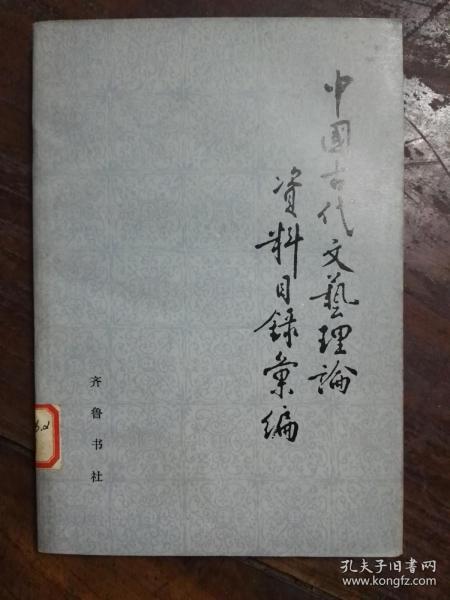 中國古代文藝理論
资料目録彙编
齐鲁书社
孔夫子旧书网
www.kongfz.com